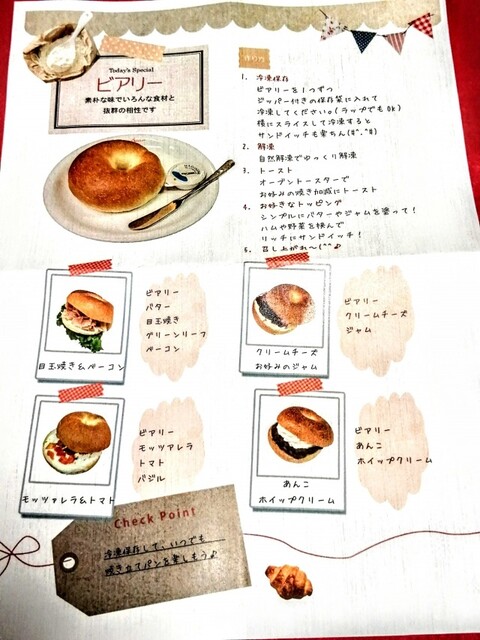 Today's Special
ビアリー
素朴な味でいろんな食材と
抜群の相性です
作り方
1. 冷凍保存
ビアリーを1つずつ
ジッパー付きの保存袋に入れて
冷凍してください。(ラップでもOK)
横にスライスして冷凍すると
サンドイッチも楽ちん(#^.^#)
2. 解凍
自然解凍でゆっくり解凍
3. トースト
オーブントースターで
お好みの焼き加減にトースト
4. お好きなトッピング
シンプルにバターやジャムを塗って!
ハムや野菜を挟んで
リッチにサンドイッチ!
5. 召し上がれ〜(^^♪
ビアリー
バター
目玉焼き
グリーンリーフ
ベーコン
目玉焼き&ベーコン
ビアリー
クリームチーズ
ジャム
クリームチーズ
お好みのジャム
ビアリー
モッツアレラ
トマト
バジル
モッツァレラ&トマト
ビアリー
あんこ
ホイップクリーム
あんこ
ホイップクリーム
Check Point
冷凍保存して、いつでも
焼き立てパンを楽しもう♪